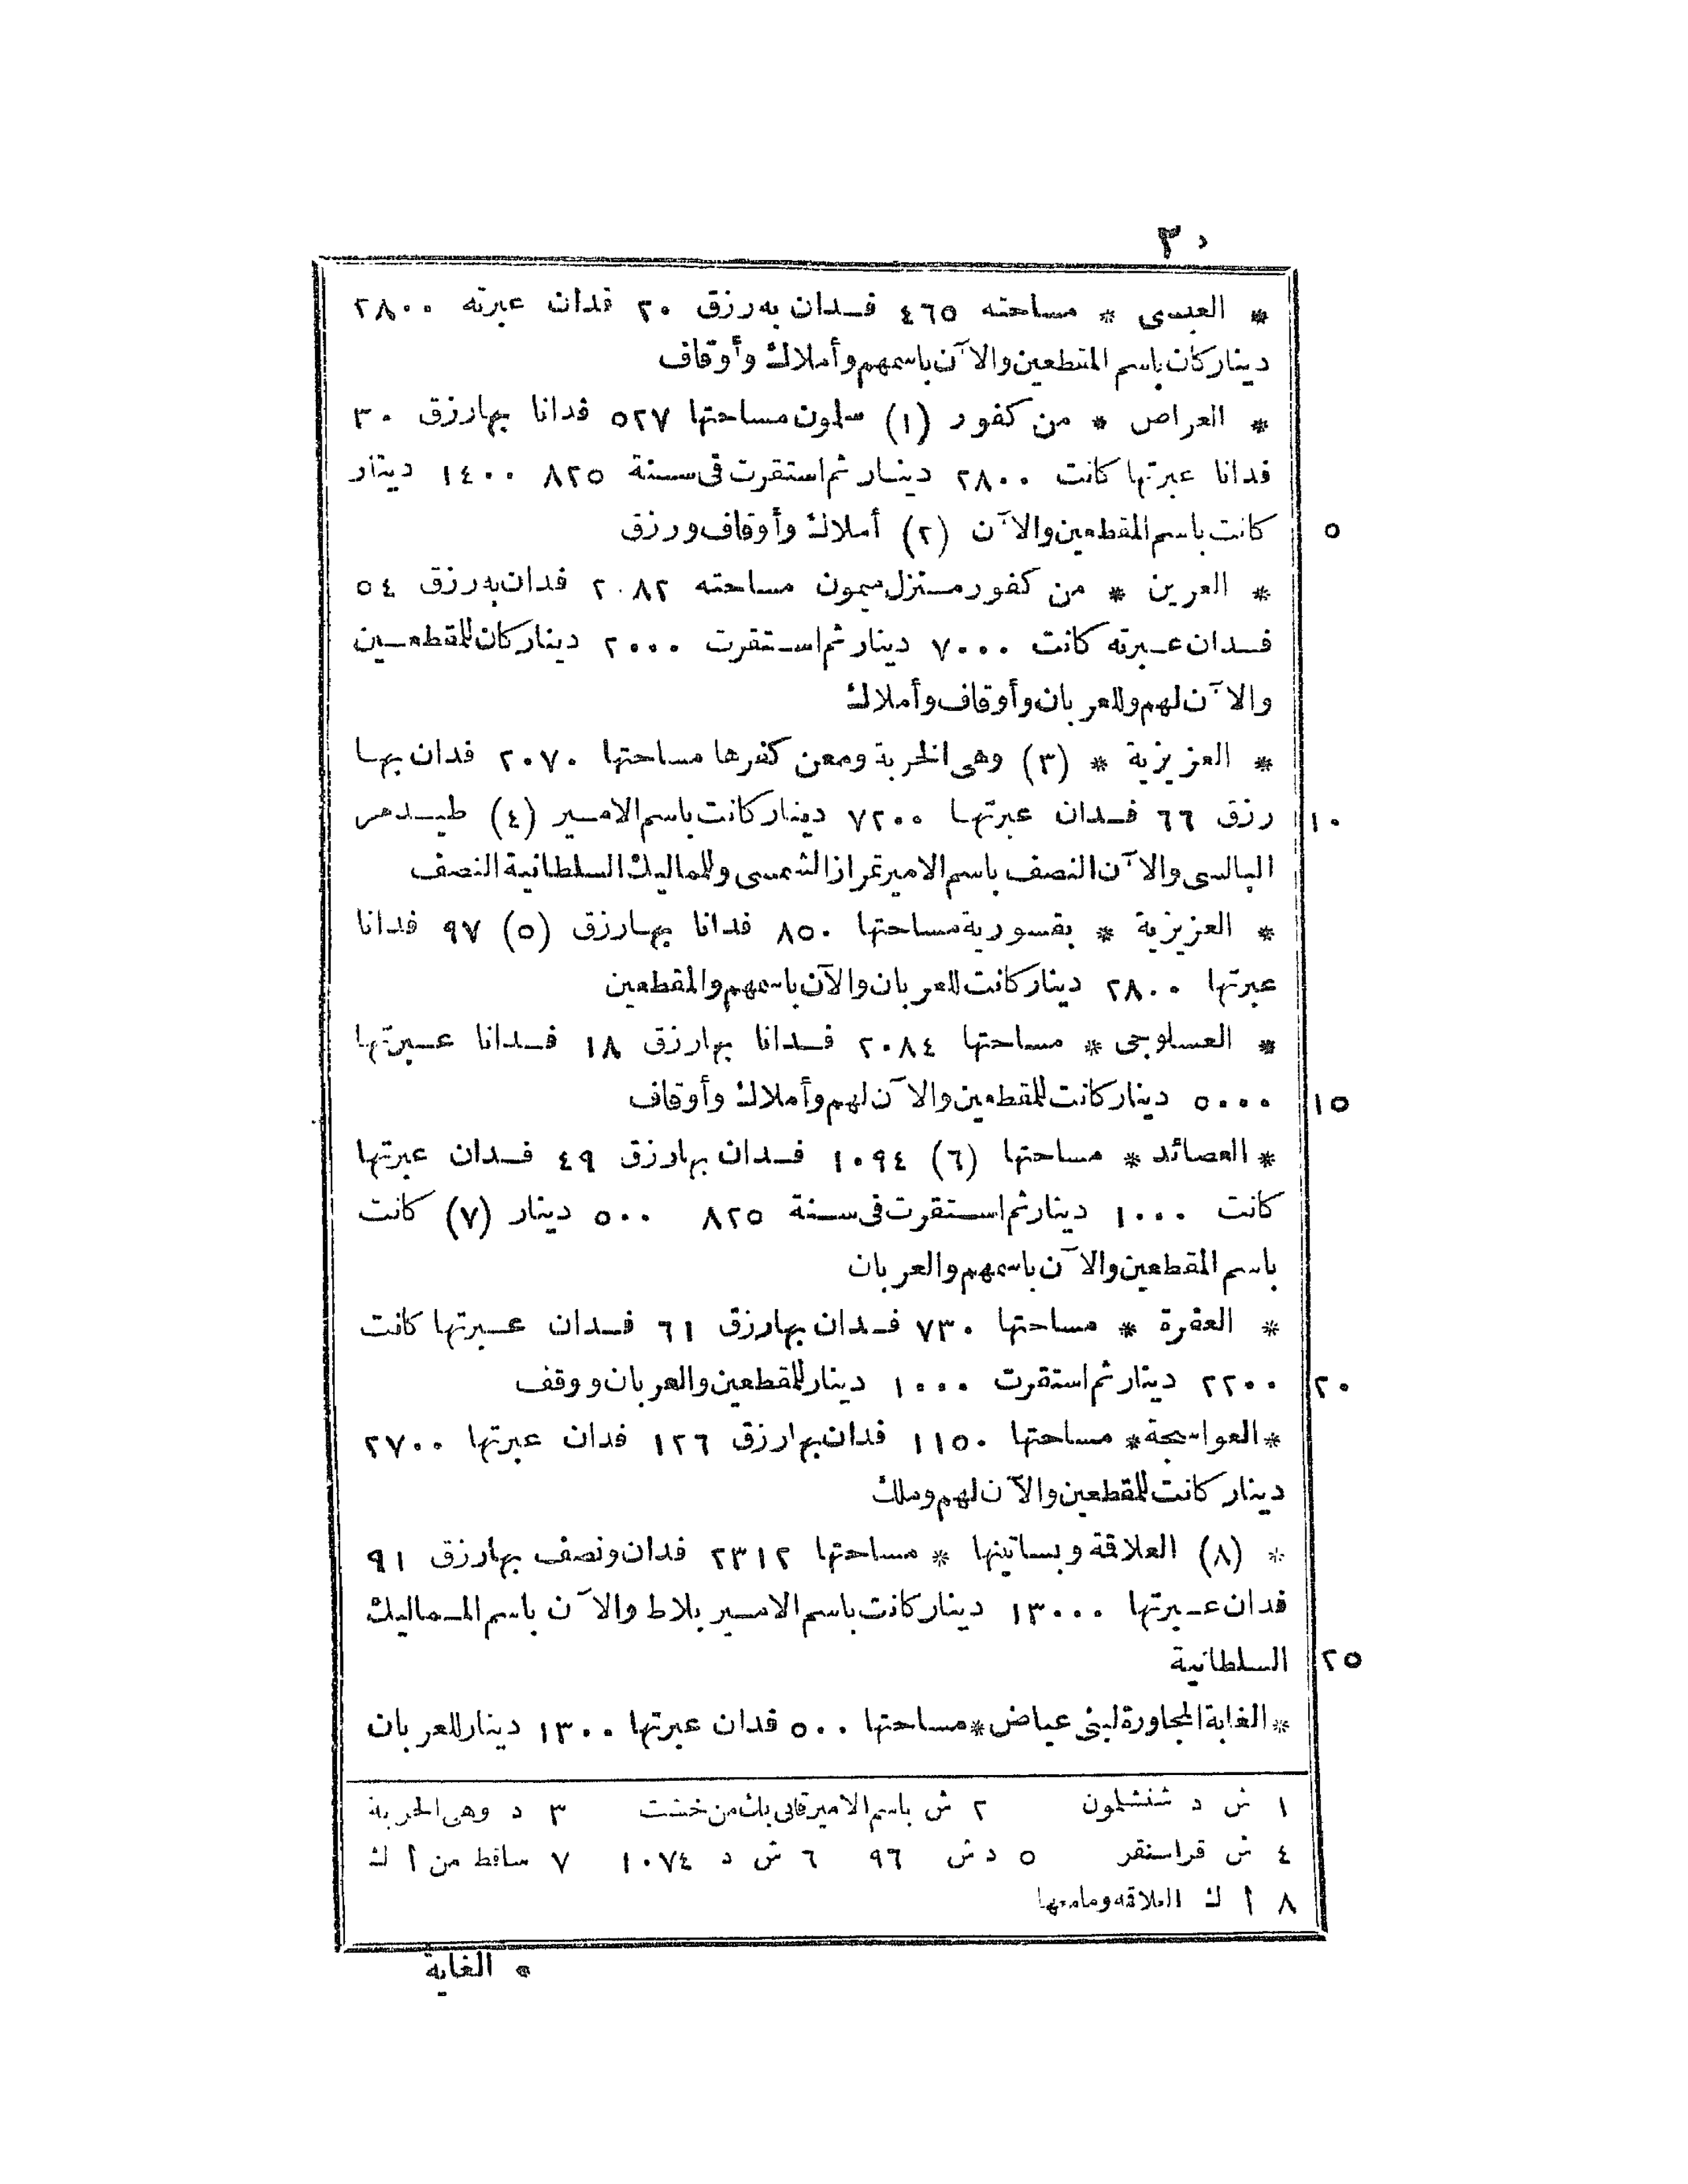 ٣٠
* العبسى * مساحته ٤٦٥ فدان به رزق ٢٠ فدان عبرته ٢٨٠٠
دينار كان باسم المقطعين والآن باسمهم وأملاك وأوقاف
* العراص * من كفور (١) سلمون مساحتها ٥٢٧ فدانا بها رزق ٣٠
فدانا عبرتها كانت ٢٨٠٠ دينار ثم استقرت فى سنة ٨٢٥ ١٤٠٠ دينار
كانت باسم المقطعين والآن (٢) أملاك وأوقاف ورزق ٥
* العرين * من كفور منزل ميمون مساحته ٢٠٨٢ فدان به رزق ٥٤
فدان عبرته كانت ٧٠٠٠ دينار ثم استقرت ٢٠٠٠ دينار كان للمقطعين
والآن لهم وللعربان وأوقاف وأملاك
* العزيزية * (٣) وهى الخربة ومعن كفرها مساحتها ٢٠٧٠ فدان بها
رزق ٦٦ فدان عبرتها ٧٢٠٠ دينار كانت باسم الامير (٤) طيدمر ١٠
البالسى والآن النصف باسم الامير تمراز الشمسى وللماليك السلطانية النصف
* العزيزية * بقسورية مساحتها ٨٥٠ فدانا بها رزق (٥) ٩٧ فدانا
عبرتها ٢٨٠٠ دينار كانت للعربان والآن باسمهم والمقطعين
* العسلوجى * مساحتها ٢٠٨٤ فدانا بها رزق ١٨ فدانا عبرتها
٥٠٠٠ دينار كانت للمقطعين والآن لهم وأملاك وأوقاف ١٥
* العصائد * مساحتها (٦) ١٠٩٤ فدان بها رزق ٤٩ فدان عبرتها
كانت ١٠٠٠ دينار ثم استقرت فى سنة ٨٢٥ ٥٠٠ دينار (٧) كانت
باسم المقطعين والآن باسمهم والعربان
* العقرة * مساحتها ٧٣٠ فدان بها رزق ٦١ فدان عبرتها كانت
٢٢٠٠ دينار ثم استقرت ١٠٠٠ دينار للمقطعين والعربان ووقف ٢٠
* العواسجة * مساحتها ١١٥٠ فدان بها رزق ١٢٦ فدان عبرتها ٢٧٠٠
دينار كانت للمقطعين والآن لهم وملك
* (٨) العلاقة وبساتينها * مساحتها ٢٣١٢ فدان ونصف بها رزق ٩١
فدان عبرتها ١٣٠٠٠ دينار كانت باسم الامير بلاط والآن باسم المماليك
السلطانية ٢٥
* الغابة المجاورة لبنى عياض * مساحتها ٥٠٠ فدان عبرتها ١٣٠٠ دينار للعربان
١ ش د شنشلمون ٢ ش باسم الامير قانى بك من خشت ٣ د وهى الحربة
٤ ش قراسنقر ٥ د ش ٩٦ ٦ ش د ١٠٧٤ ٧ ساقط من أ ك
٨ أ ك العلاقه وما معها
* الغاية